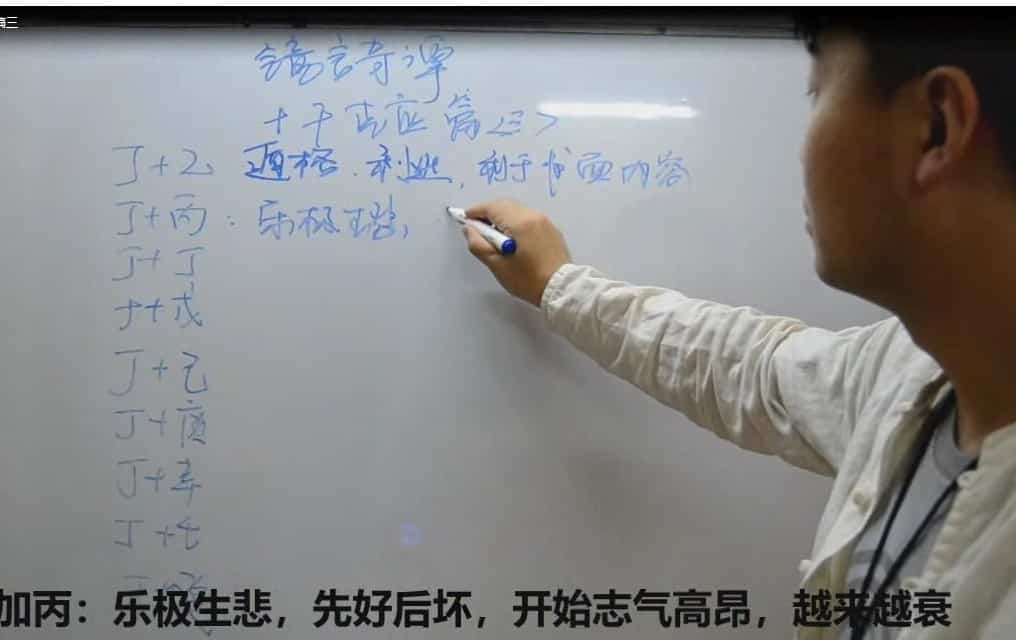 高三
奇谭
十干克应篇<三>
丁+乙 遁格.利于书面内容
丁+丙:乐极生悲,
丁+丁
丁+戊
丁+己
丁+庚
丁+辛
丁+壬
加丙：乐极生悲，先好后坏，开始志气高昂，越来越衰